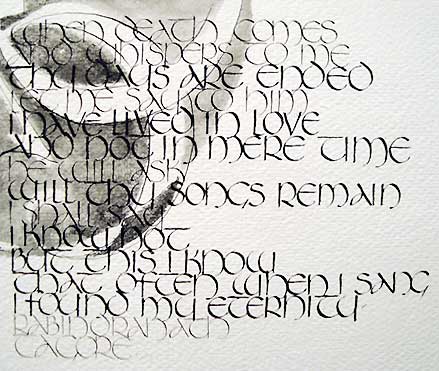 When death comes
and whispers to me
thy days are ended
let me say to him
I have lived in love
and not in mere time
he will ask
will thy songs remain
I shall say
I know not
but this I know
that often when I sang
I found my eternity
Rabindranath
Tagore